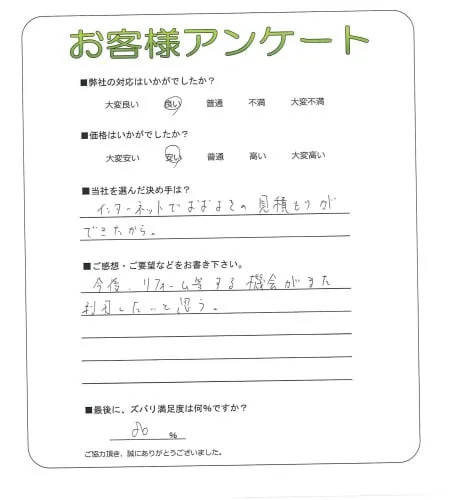 お客様アンケート
■弊社の対応はいかがでしたか?
大変良い 良い 普通 不満 大変不満
■価格はいかがでしたか?
大変安い 安い 普通 高い 大変高い
■当社を選んだ決め手は?
インターネットでおおよその見積もりが
できたから。
■ご感想・ご要望などをお書き下さい。
今後、リフォーム等する機会がまた
利用したいと思う。
■最後に、ズバリ満足度は何%ですか?
%
ご協力頂き、誠にありがとうございました。